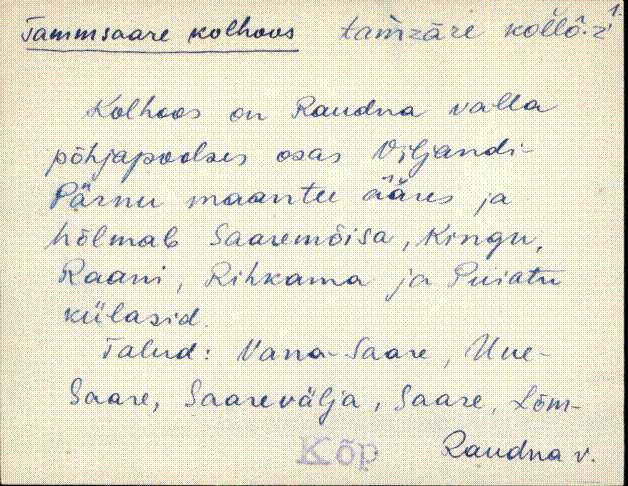 Tammsaare kolhoos tam̀zāre kollō·z' 1.
Kolhoos on Raudna valla
põhjapoolses osas Viljandi-
Pärnu maantee ääres ja
hõlmab Saaremõisa, Kingu,
Raani, Rihkama ja Puiatu
külasid.
Talud: Vana-Saare, Uue-
Saare, Saarevälja, Saare, Lõm-
Kõp Raudna v.